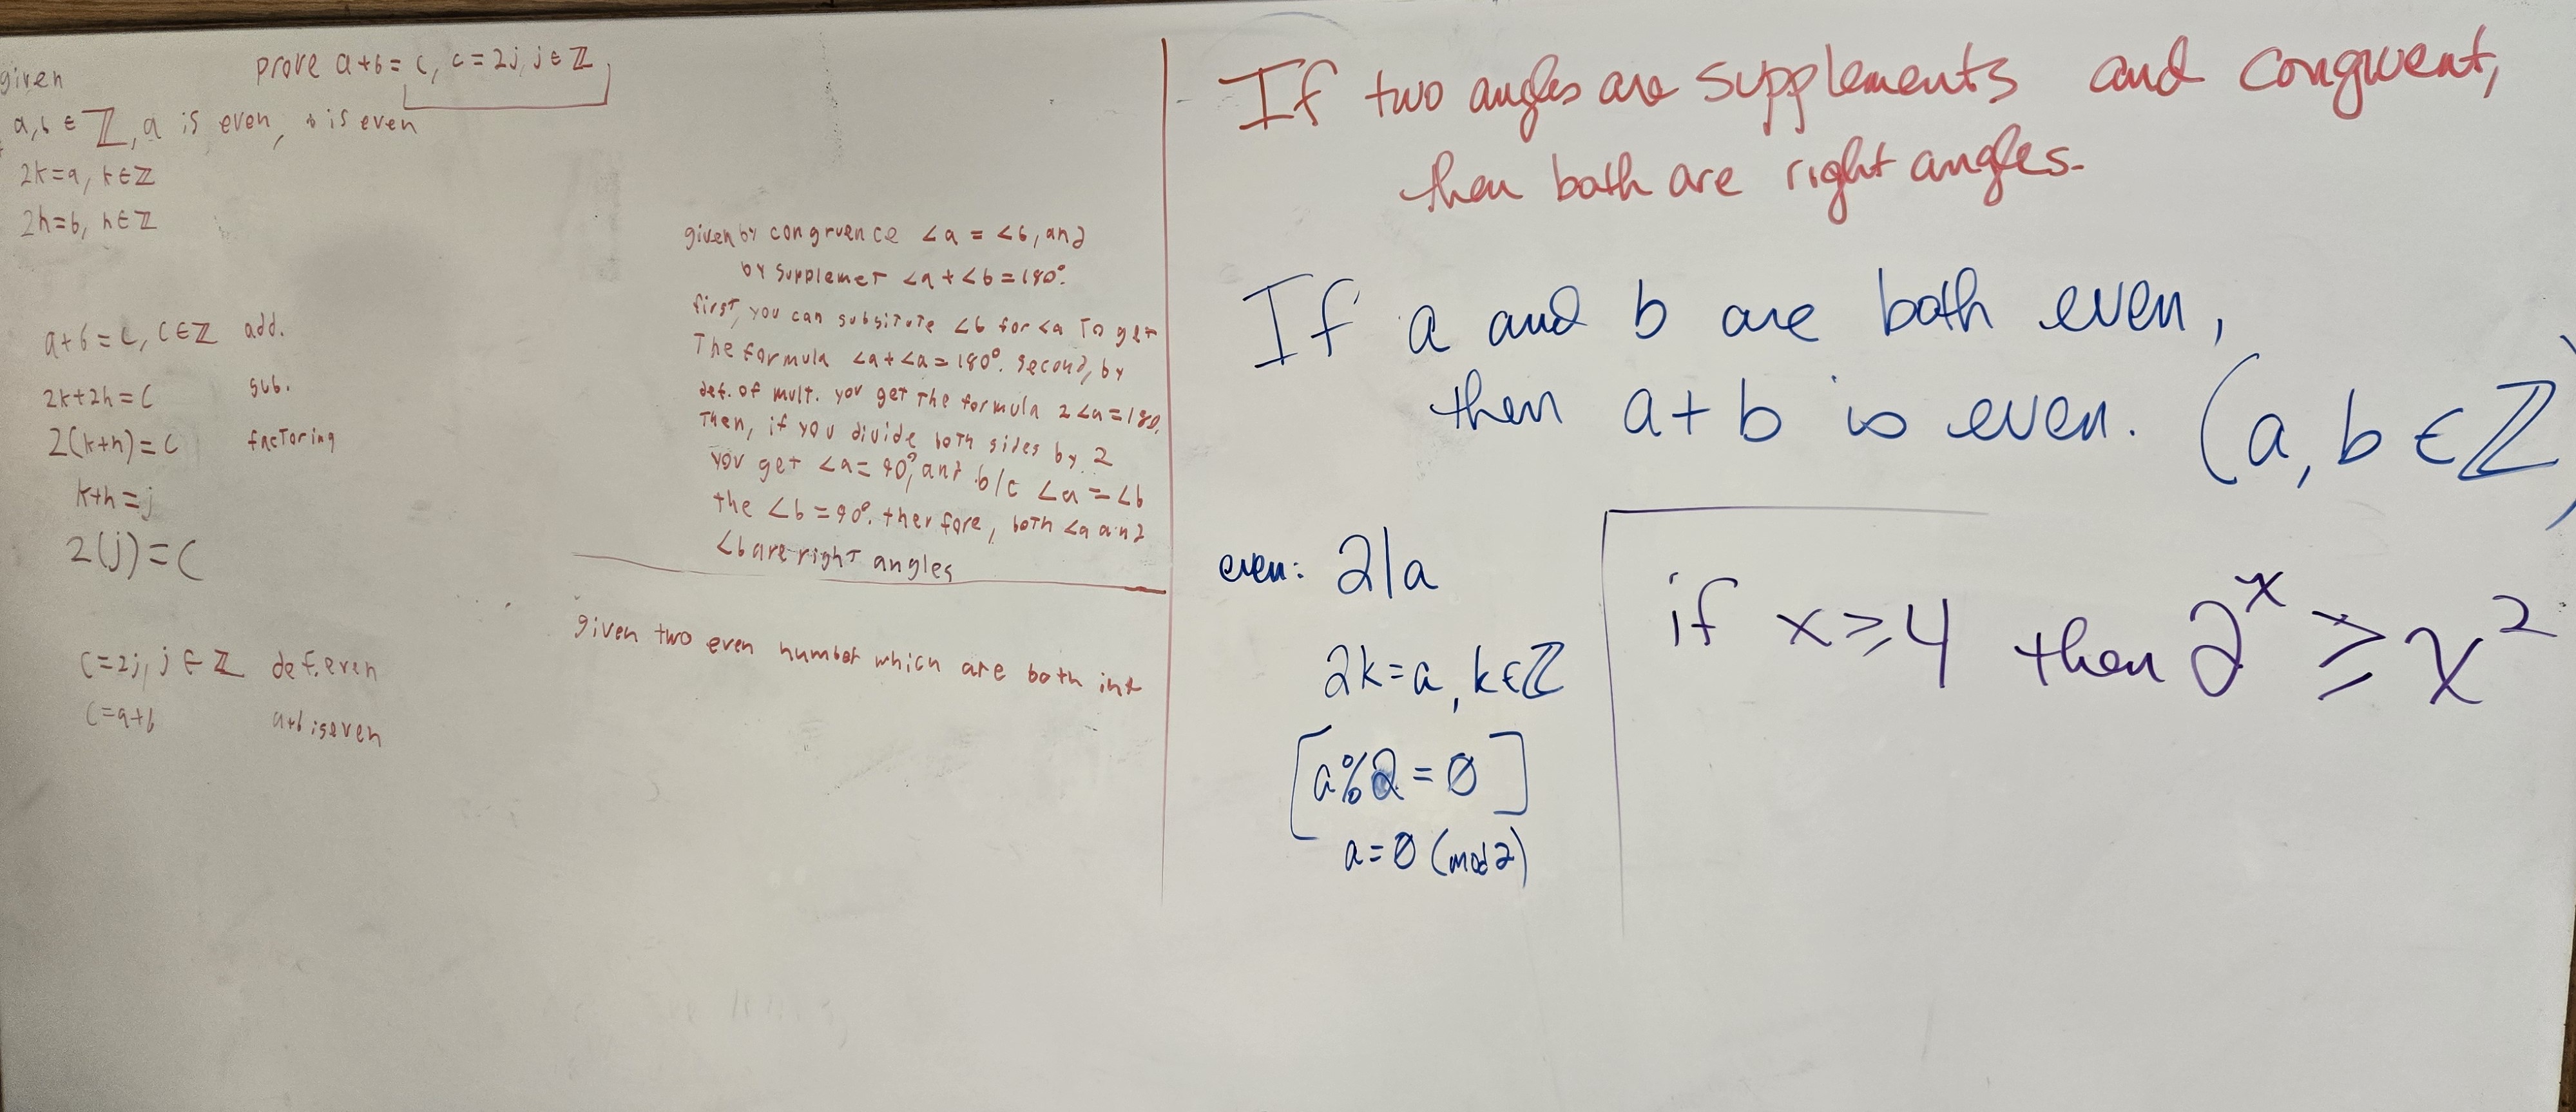 given
prove a+b = c, c = 2j, j ∈ ℤ
a,b ∈ ℤ, a is even, b is even
2k=a, k∈ℤ
2h=b, h∈ℤ
a+b = c, c∈ℤ add.
2k+2h = c sub.
2(k+h) = c factoring
k+h = j
2(j) = c
c=2j, j ∈ ℤ def. even
c=a+b a+b is even
given by congruence ∠a = ∠b, and
by supplemet ∠a + ∠b = 180°.
first, you can subsitute ∠b for ∠a to get
The formula ∠a + ∠a = 180°. second, by
def. of mult. you get the formula 2∠a = 180.
Then, if you divide both sides by 2
you get ∠a = 90°, and b/c ∠a = ∠b
the ∠b = 90°. therfore, both ∠a and
∠b are right angles
given two even number which are both int
If two angles are supplements and congruent,
then both are right angles.
If a and b are both even,
then a+b is even. (a, b ∈ ℤ)
even: 2|a
2k=a, k∈ℤ
[a%2 = 0]
a = 0 (mod 2)
if x ≥ 4 then 2^x ≥ x^2